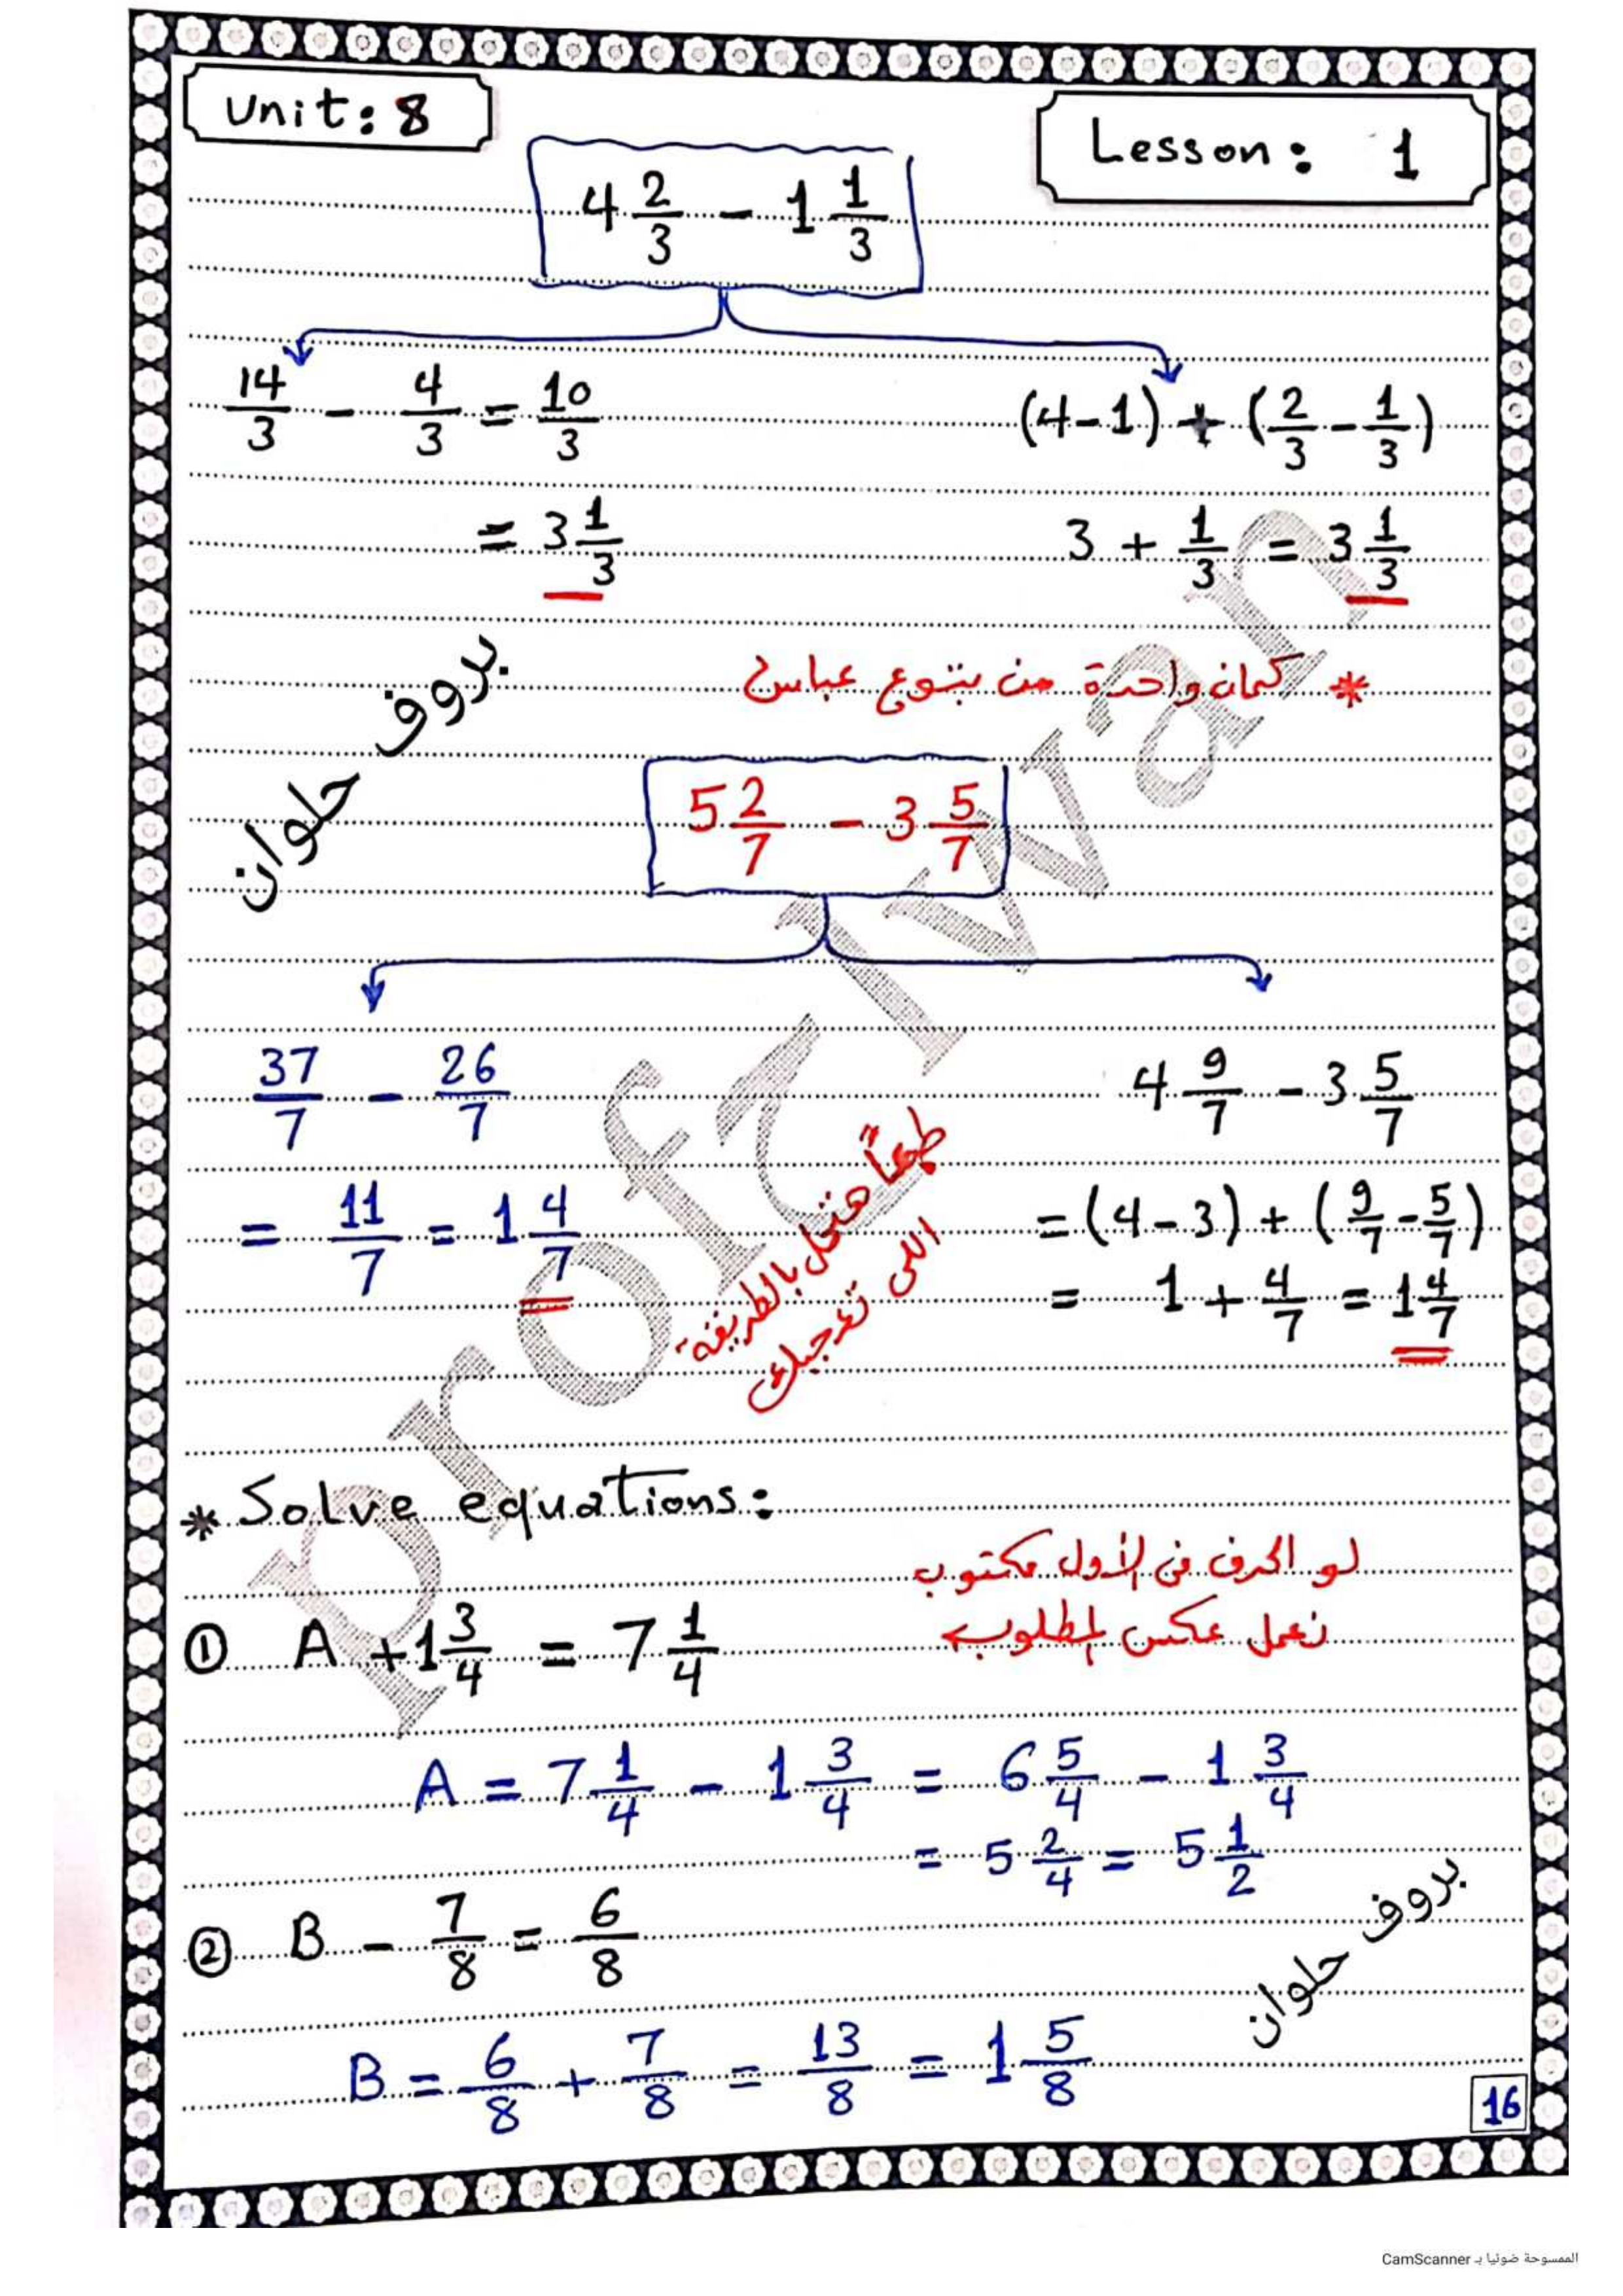 Unit: 8
Lesson: 1
4 2/3 - 1 1/3
14/3 - 4/3 = 10/3
(4-1) + (2/3 - 1/3)
= 3 1/3
3 + 1/3 = 3 1/3
بروف حلوان
* كمان واحدة من بتوع عباس
5 2/7 - 3 5/7
37/7 - 26/7
4 9/7 - 3 5/7
= 11/7 = 1 4/7
= (4-3) + (9/7 - 5/7)
= 1 + 4/7 = 1 4/7
طبعاً هتحل بالطريقة
اللى تعجبك
* Solve equations:
لو الحرف فى الأول مكتوب
نعمل عكس المطلوب
① A + 1 3/4 = 7 1/4
A = 7 1/4 - 1 3/4 = 6 5/4 - 1 3/4
= 5 2/4 = 5 1/2
② B - 7/8 = 6/8
B = 6/8 + 7/8 = 13/8 = 1 5/8
بروف حلوان
16
الممسوحة ضوئيا بـ CamScanner